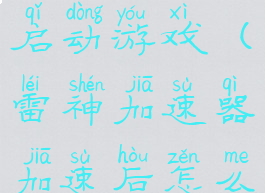 qǐ dòng yóu xì
启动游戏（
léi shén jiā sù qì
雷神加速器
jiā sù hòu zěn me
加速后怎么